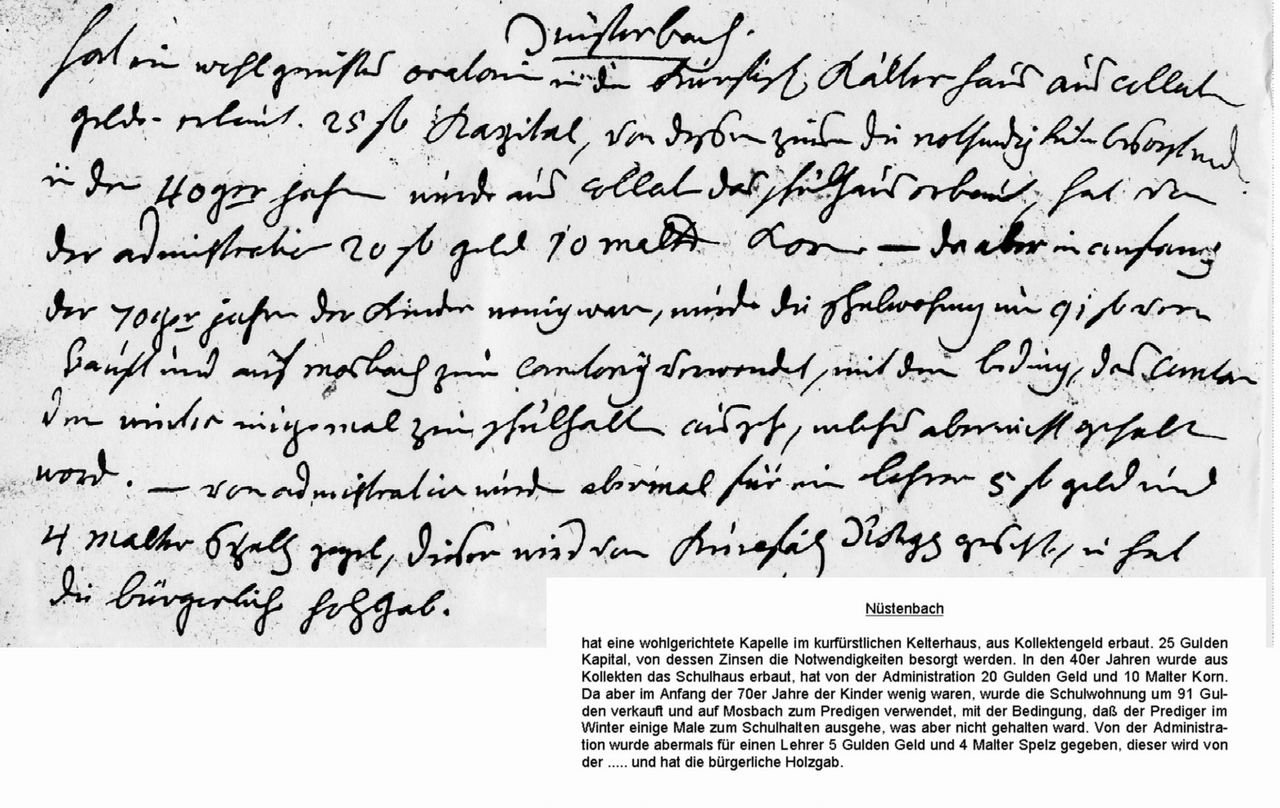 Nüstenbach.
hat ein wohlgerichtes oratori in die Kurfürstl. Kälter haus aus collect
geld erbaut. 25 fl Kapital, von dessen zinsen die nothwendigkeiten besorgt werd.
in den 40ger jahren wurde aus collect das schulhaus erbaut, hat von
der administration 20 fl geld 10 malter Korn — da aber in anfang
der 70ger jahren der Kinder wenig waren, wurde die schulwohnung um 91 fl ver
kauft und auf mosbach zum verwendet, mit dem beding, das
den winter einigemal zum schulhalten ausgeh, welches aber nicht gehalten
word. — von administration wurde abermal für ein lehrer 5 fl geld und
4 malter Spelz gegeb, dieser wird von und hat
die bürgerliche holzgab.
Nüstenbach
hat eine wohlgerichtete Kapelle im kurfürstlichen Kelterhaus, aus Kollektengeld erbaut. 25 Gulden
Kapital, von dessen Zinsen die Notwendigkeiten besorgt werden. In den 40er Jahren wurde aus
Kollekten das Schulhaus erbaut, hat von der Administration 20 Gulden Geld und 10 Malter Korn.
Da aber im Anfang der 70er Jahre der Kinder wenig waren, wurde die Schulwohnung um 91 Gul-
den verkauft und auf Mosbach zum Predigen verwendet, mit der Bedingung, daß der Prediger im
Winter einige Male zum Schulhalten ausgehe, was aber nicht gehalten ward. Von der Administra-
tion wurde abermals für einen Lehrer 5 Gulden Geld und 4 Malter Spelz gegeben, dieser wird von
der ..... und hat die bürgerliche Holzgab.